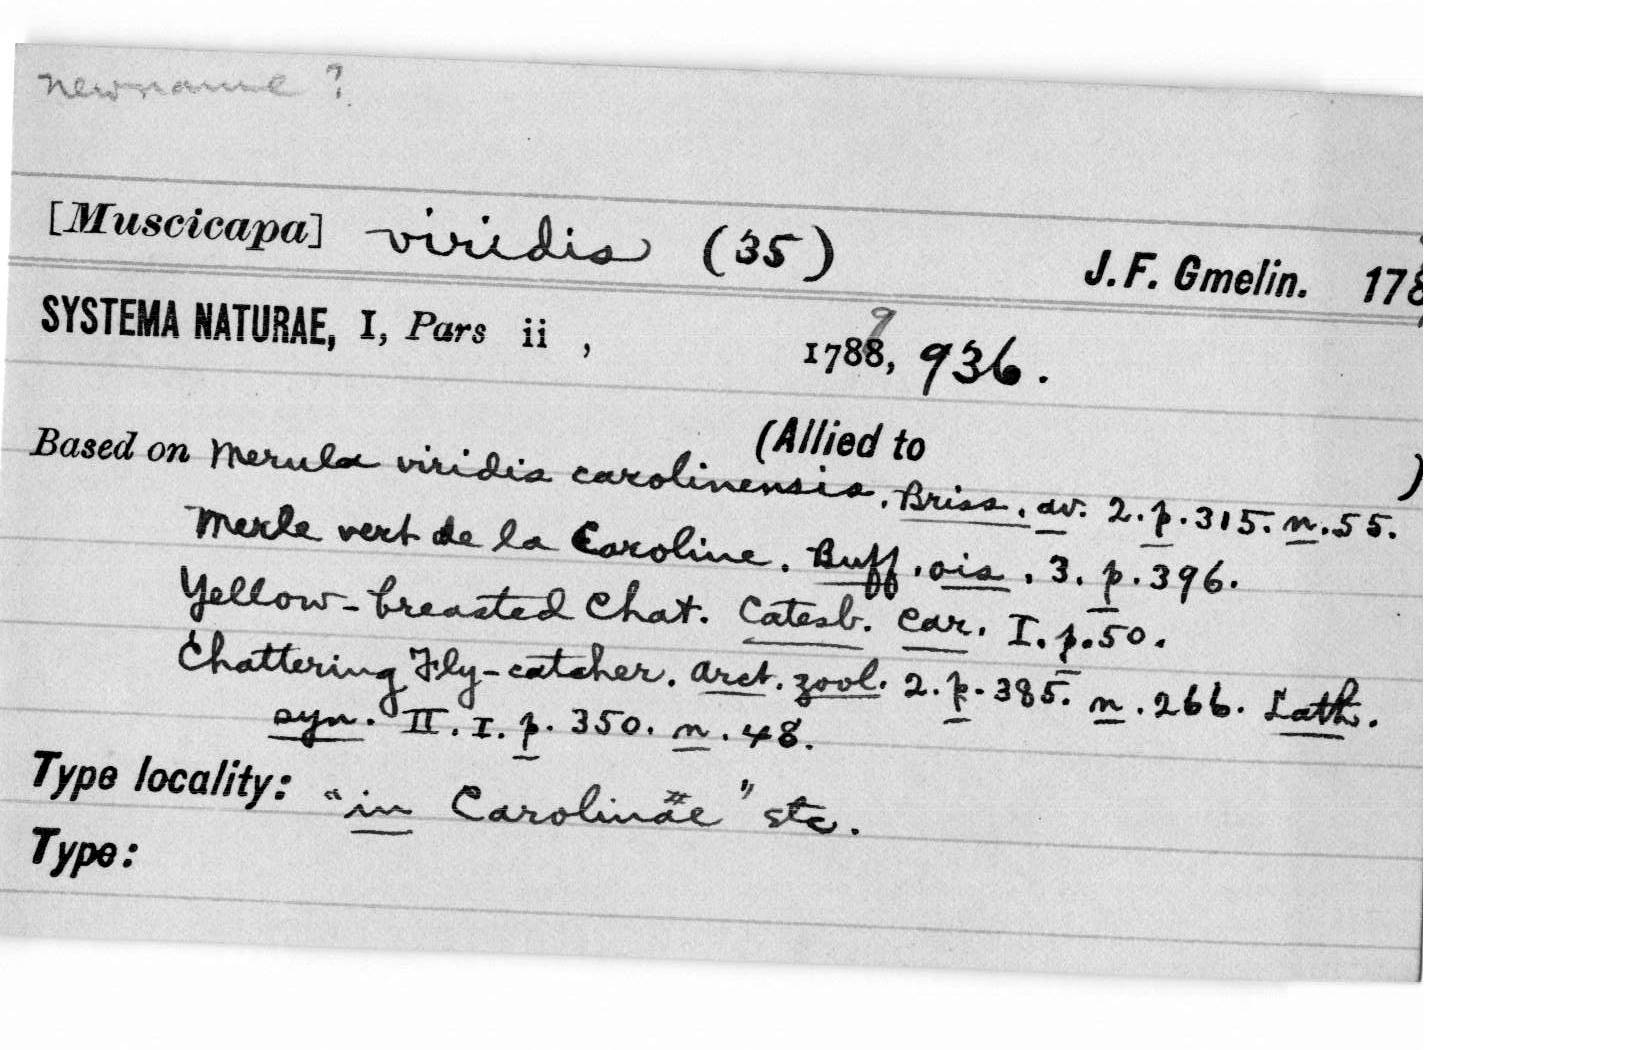 newname ?
[Muscicapa] viridis (35)
J. F. Gmelin. 178
SYSTEMA NATURAE, I, Pars ii , 1788, 9 936.
(Allied to )
Based on Merula viridis carolinensis. Briss. av. 2. p. 315. n. 55.
Merle vert de la Caroline. Buff. ois. 3. p. 396.
Yellow-breasted Chat. Catesb. Car. I. p. 50.
Chattering Fly-catcher. Arct. zool. 2. p. 385. n. 266. Lath.
syn. II. I. p. 350. n. 48.
Type locality: "in Carolinae" etc.
Type: